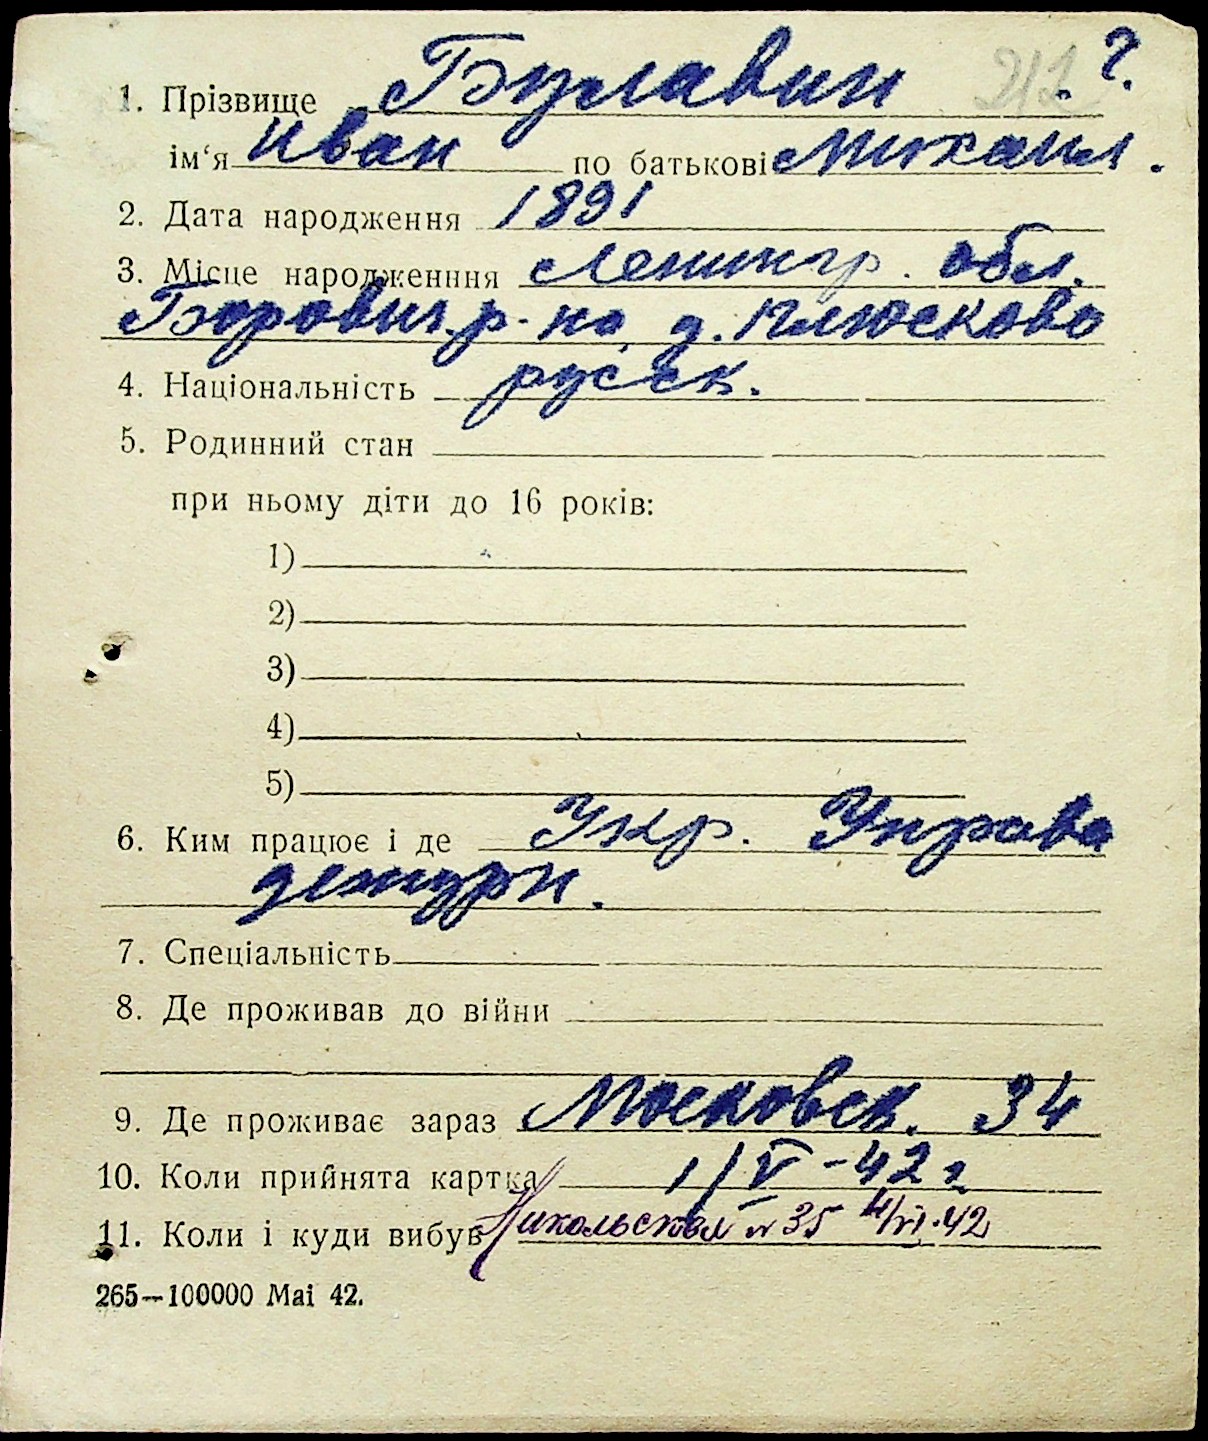 1. Прізвище Булавин 212 ?.
ім‘я Иван по батькові Михаил.
2. Дата народження 1891
3. Місце народженння Ленингр. обл.
Борович. р-на, д. Плюсково
4. Національність русск.
5. Родинний стан
при ньому діти до 16 років:
1)
2)
3)
4)
5)
6. Ким працює і де Укр. Управа
дежурн.
7. Спеціальність
8. Де проживав до війни
9. Де проживає зараз Московск. 34
10. Коли прийнята картка 1/V-42 г
11. Коли і куди вибув Никольская № 35 4/VI-42
265—100000 Маі 42.